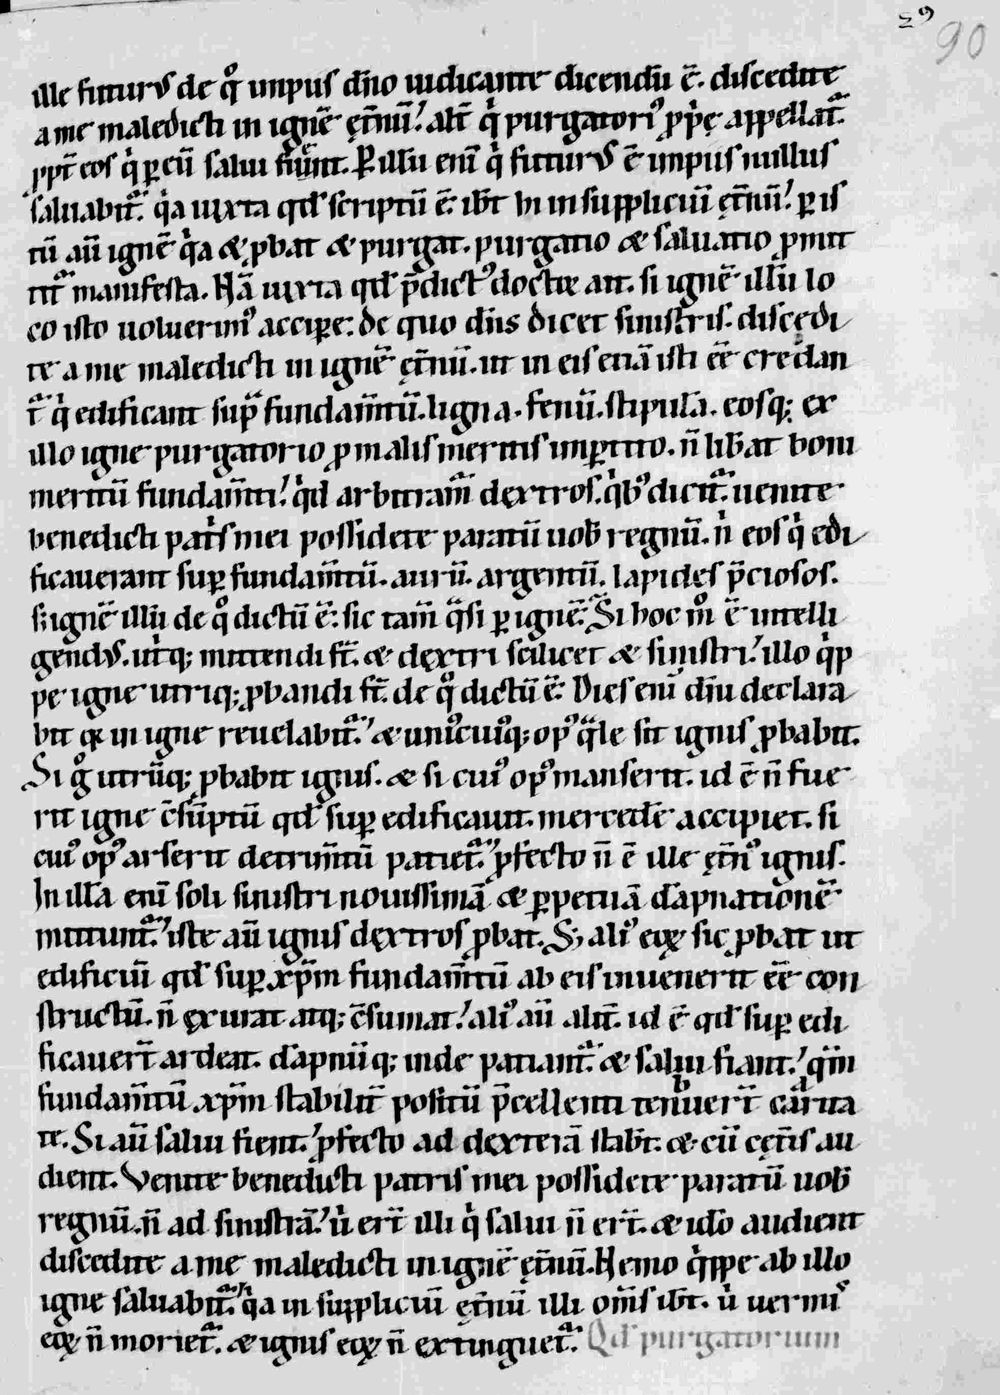 29
90
ille futurus de qͦ impius dn̄o iudicante dicendū ē. discedite
a me maledicti in ignē ęt̄nū! alit̄ qͥ purgatori᾽ ꝓp̄e appellat᷑.
ꝓpt̄ eos qͥ ꝑ eū salui fiunt. Per illū eni qͥ futurus ē impius nullus
saluabit᷑. qͥa iuxta qd̄ scriptū ē. ibt̄ hi in suppliciū ęt̄nū! ꝑ is
tū aū ignē qͥa & ꝓbat & purgat. purgatio & saluatio ꝓmit
tit᷑ manifesta. Nā iuxta qd̄ p̄dict᾽ doctor ait. si ignē illū lo
co isto uoluerim᾽ accipe: de quo dn̄s dicet sinistris. discedi
te a me maledicti in ignē ęt̄nū. ut in eis etiā isti eē credan
t᷑ qͥ edificant sup̄ fundam̄tū. ligna. fenū. stipulā. eosq; ex
illo igne purgatorio ꝓ malis meritis imꝑtito. n̄ libat boni
meritū fundam̄ti! qͥd arbitram̄ dextros. qͥb᾽ dicit᷑. uenite
benedicti pat̄s mei possidete paratū uob̄ regnū. nͥ eos qͥ edi
ficauerant suꝑ fundam̄tū. aurū. argentū. lapides p̄ciosos.
Si ignē illū de qͦ dictū ē: sic tam̄ qᷓsi ꝑ ignē. Si hoc mͦ ē intelli
gendus. ut̄q; mittendi st̄. & dextri scilicet & sinistri! illo qͥp
pe igne utriq; ꝓbandi st̄. de qͦ dictū ē: Dies eni dn̄i declara
bit qꝛ in igne reuelabit᷑! & uni᾽cui᾽q; op᾽ qᷓle sit ignis ꝓbabit.
Si gͦ utrūq; ꝓbabit ignis. & si cui᾽ op᾽ manserit. id ē n̄ fue
rit igne c̄sūptū qd̄ suꝑ edificauit. mercedē accipiet. si
cui᾽ op᾽ arserit detrim̄tū patiet᷑! ꝓfecto n̄ ē ille ęt̄n᾽ ignis.
In illā eni soli sinistri nouissimā & ꝑpetuā dāpnationē
mittunt᷑! iste aū ignis dextros ꝓbat. S; ali᾽ eoꝝ sic ꝓbat ut
edificiū qd̄ suꝑ xp̄m fundam̄tū ab eis inuenerit eē con
structū. n̄ exurat atq; c̄sumat! ali᾽ aū alit̄. id ē qd̄ suꝑ edi
ficauert̄ ardeat. dāpnūq; inde patiant᷑. & salui fiant! qm̄
fundam̄tū xp̄m stabilit̄ positū p̄cellenti tenuert̄ carita
te. Si aū salui fient! ꝓfecto ad dexterā stabt̄. & cū cęt̄is au
dient. Venite benedicti patris mei possidete paratū uob̄
regnū. n̄ ad sinistrā! uͥ ert̄ illi qͥ salui n̄ ert̄. & ido audient
discedite a me maledicti in ignē ęt̄nū. Nemo qͥppe ab illo
igne saluabit᷑. qͥa in suppliciū ęt̄nū illi om̄s ibt̄. uͥ uermis
eoꝝ n̄ moriet᷑. & ignis eoꝝ n̄ extinguet᷑. Qd̄ purgatorium